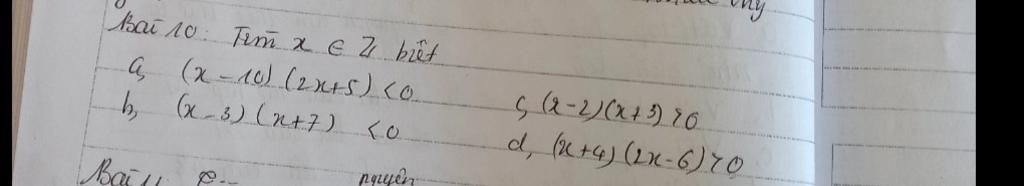 Bài 10: Tìm x ∈ Z biết
a, (x-10)(2x+5) <0
b, (x-3)(x+7) <0
c, (x-2)(x+3) >0
d, (x+4)(2x-6) >0
Bài 11
nguyên